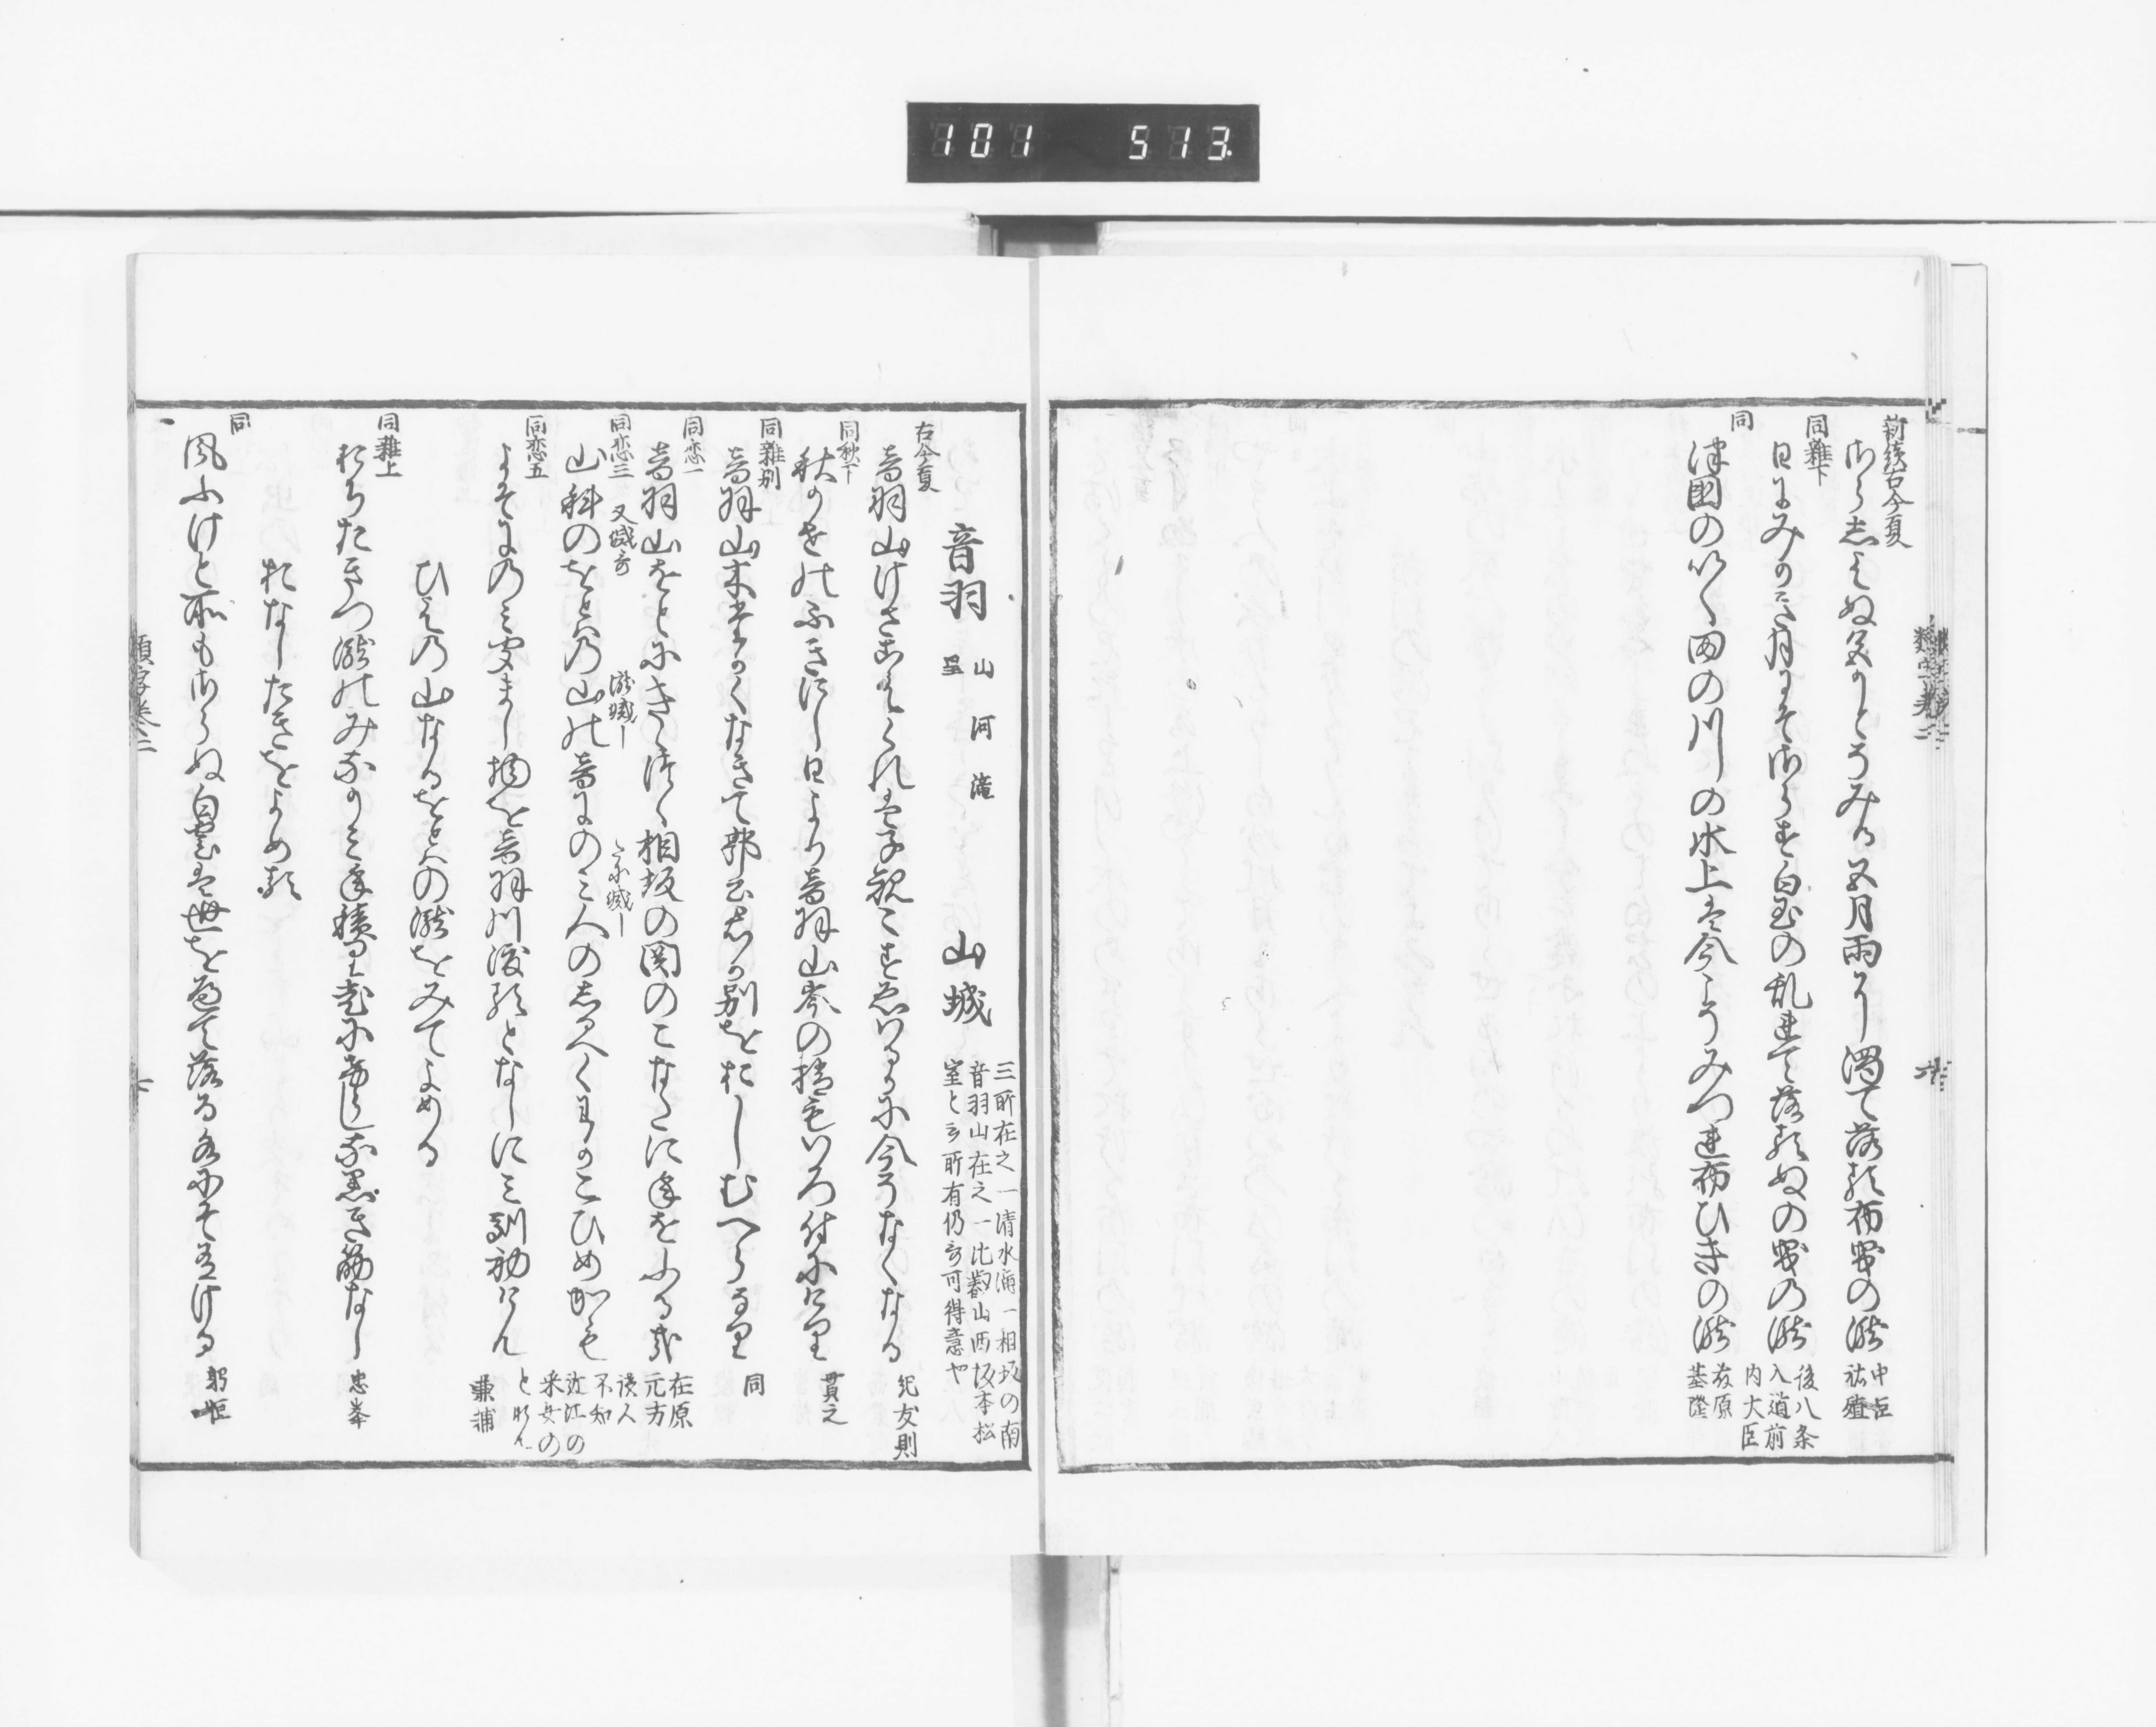 101 513
新続古今夏
さらしえぬ尽かとそみる五月雨に濁て落る布曳の滝
中臣祐殖
同雑下
日にみかき月にそさらす白玉の乱連て落るぬの曳の滝
後八条入道前内大臣
同
津国のいく田の川の水上は今こそみつ連布ひきの滝
藤原基隆
類字巻三
六
音羽 山 河 滝 里 山城
三所在之一清水滝一相坂の南
音羽山在之一比叡山西坂本松
室と云所有仍哥可得意や
古今夏
音羽山けさこえくれは子規こすゑはるかに今そなくなる
紀友則
同秋下
秋かせのふきにし日より音羽山岑の梢も色付にけり
貫之
同離別
音羽山木たかくなきて郭公君か別をおしむへらなり
同
同恋一
音羽山をとにきゝつゝ相坂の関のこなたに年をふる哉
在原元方
同恋三 又墨哥
山科のをとはの山の音にのみ人のしるへくわかこひめかも
読人不知
近江の采女のとなん
同恋五
よそにのみ聞まし物を音羽川渡るとなしにみ馴初けん
兼輔
ひえの山なるをとはの滝をみてよめる
同雑上
おちたきつ滝のみなかみ年積り老にけらしな黒き筋なし
忠岑
おなしたきをよめる
同
風ふけと所もさらぬ白雲は世をへて落る水にそ有ける
躬恒
類字巻三
七